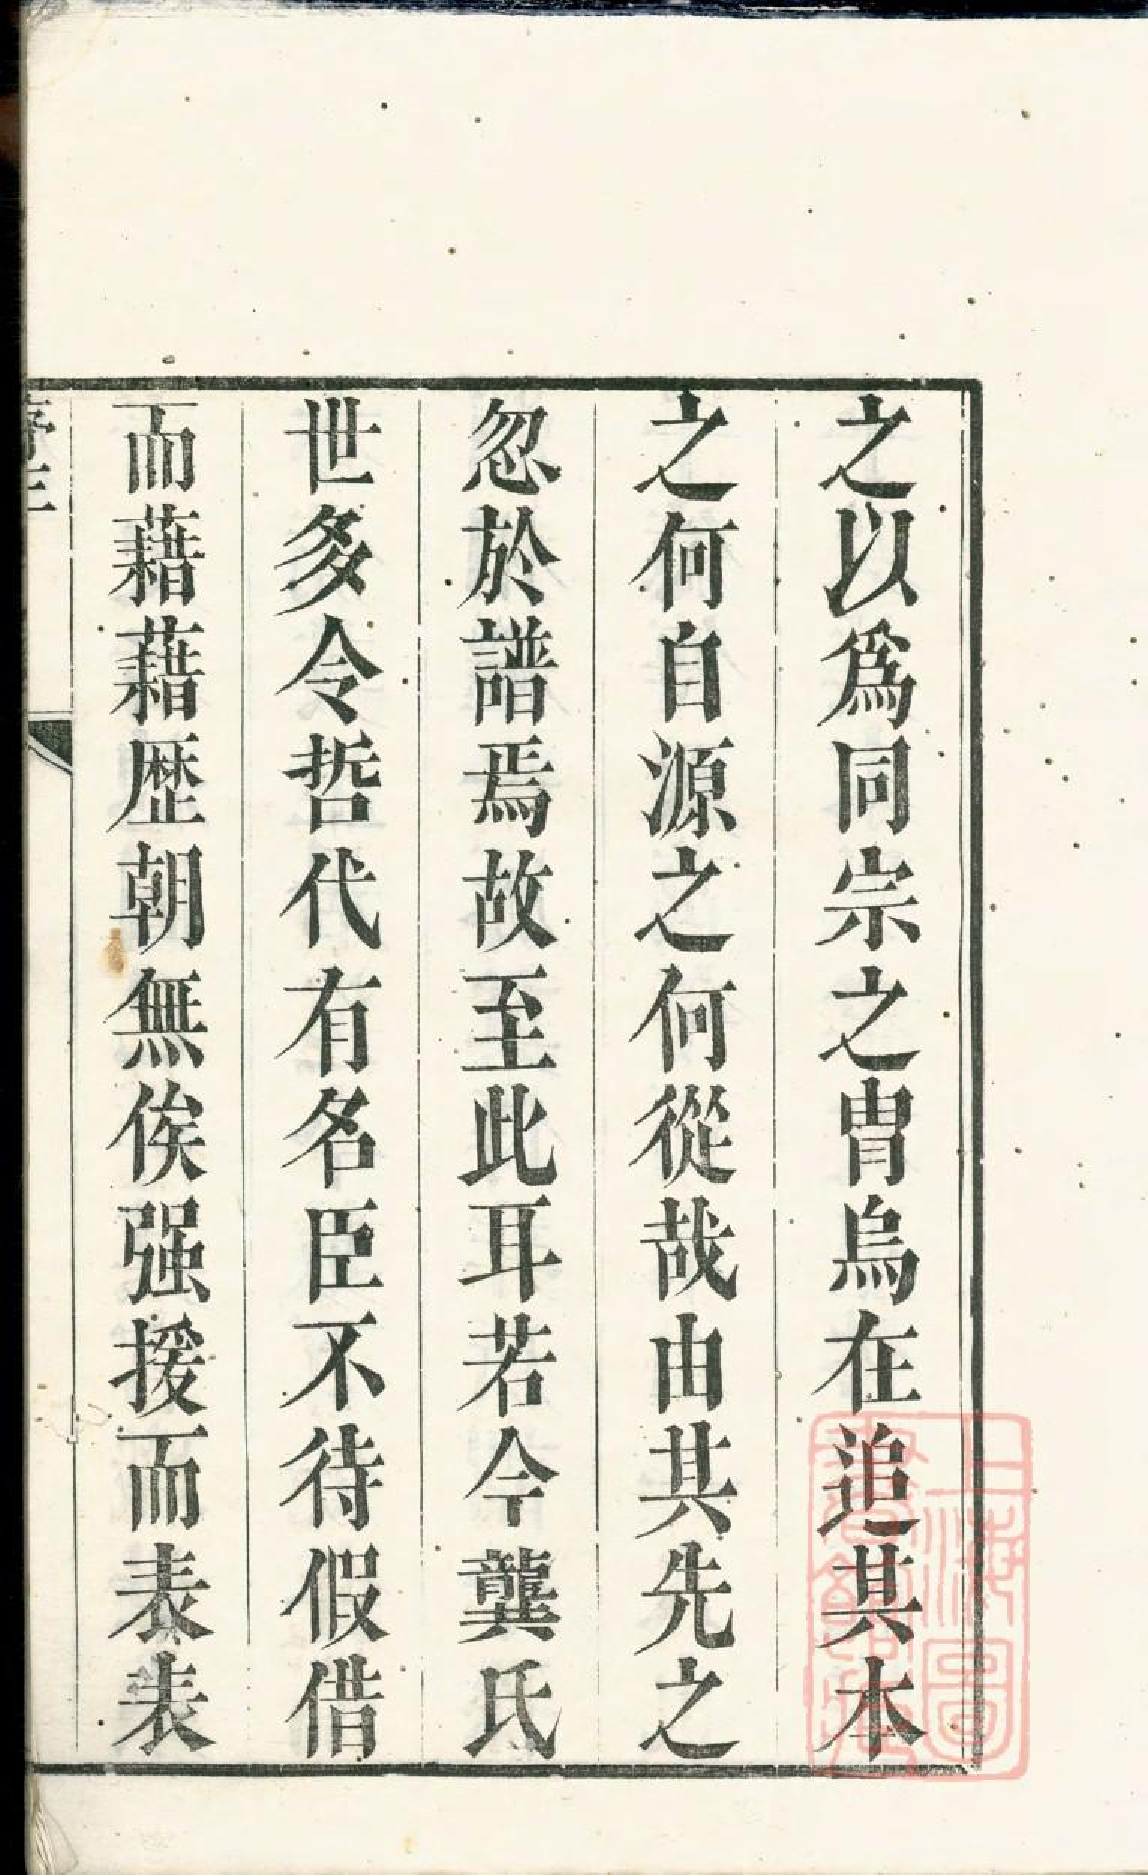 之以爲同宗之冑烏在追其本
之何自源之何從哉由其先之
忽於譜焉故至此耳若今龔氏
世多令哲代有名臣不待假借
而藉藉歴朝無俟强援而表表